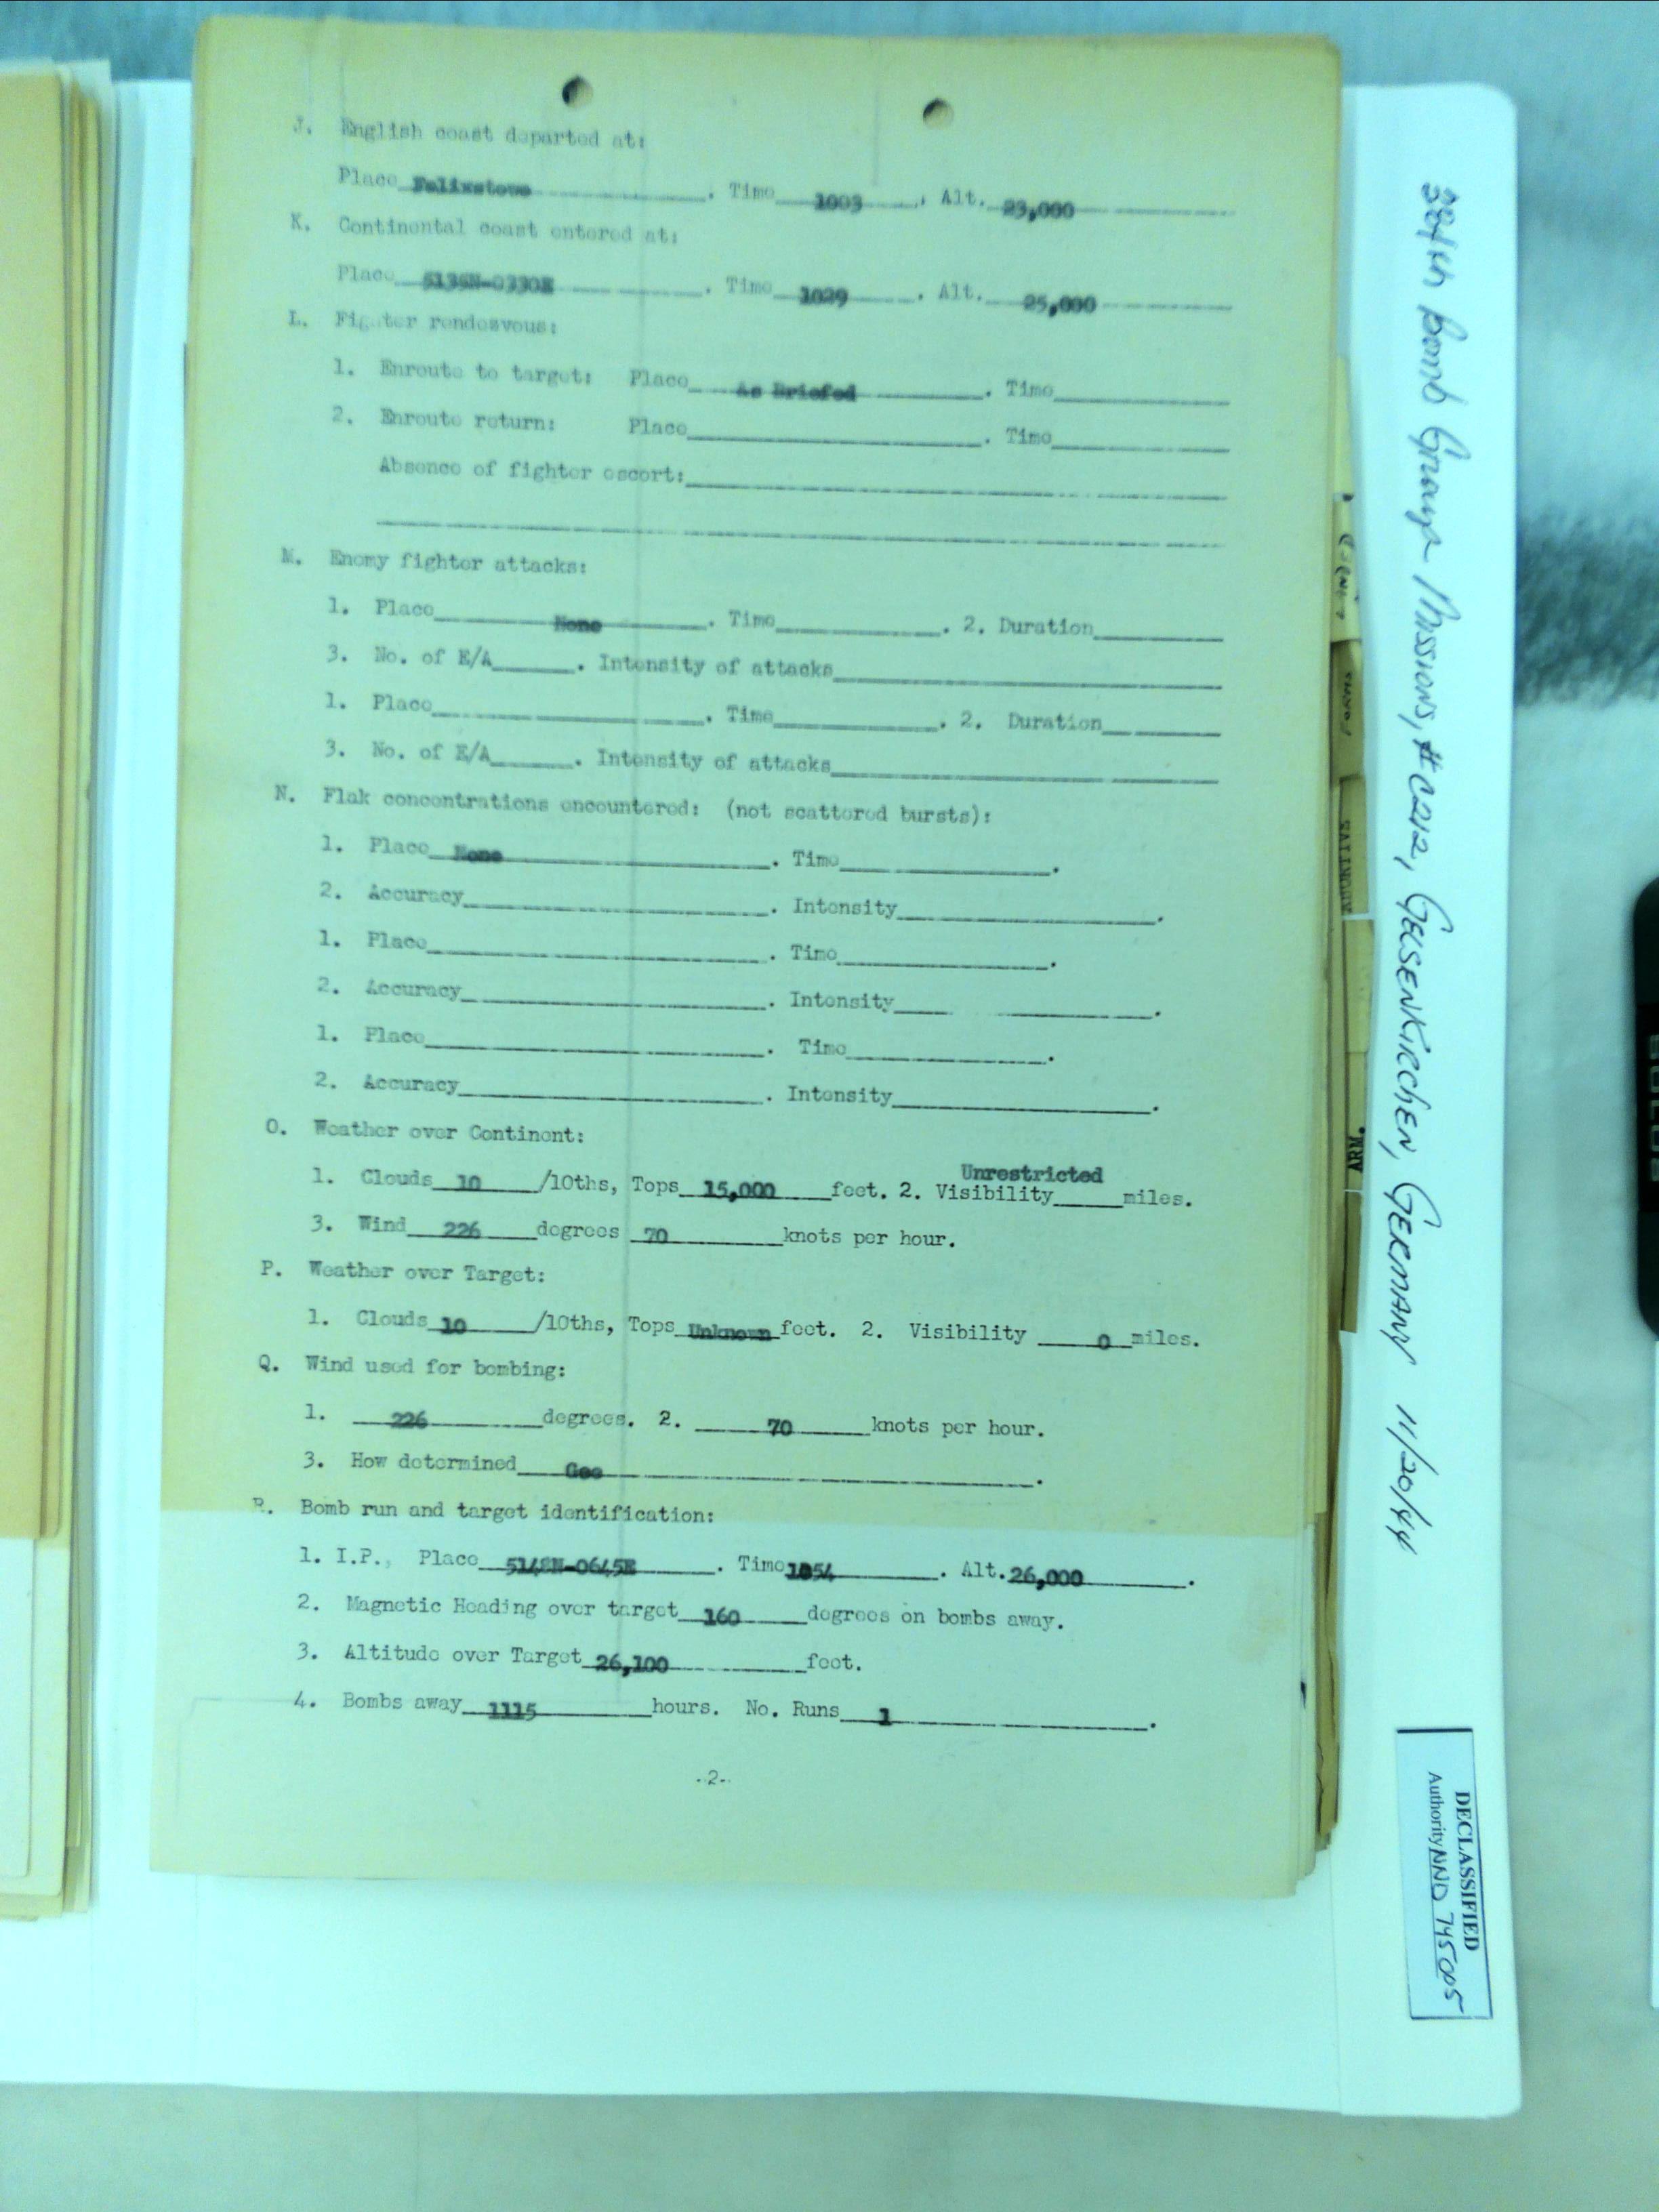 J. English coast departed at:
Place Felixstowe . Time 1003 . Alt. 23,000
K. Continental coast entered at:
Place 5136N-0330E . Time 1029 . Alt. 25,000
L. Fighter rendesvous:
1. Enroute to target: Place As Briefed . Time
2. Enroute return: Place . Time
Absence of fighter escort:
M. Enemy fighter attacks:
1. Place None . Time . 2. Duration
3. No. of E/A . Intensity of attacks
1. Place . Time . 2. Duration
3. No. of E/A . Intensity of attacks
N. Flak concentrations encountered: (not scattered bursts):
1. Place None . Time .
2. Accuracy . Intensity .
1. Place . Time .
2. Accuracy . Intensity .
1. Place . Time .
2. Accuracy . Intensity .
O. Weather over Continent:
1. Clouds 10 /10ths, Tops 15,000 feet. 2. Visibility Unrestricted miles.
3. Wind 226 degrees 70 knots per hour.
P. Weather over Target:
1. Clouds 10 /10ths, Tops Unknown feet. 2. Visibility 0 miles.
Q. Wind used for bombing:
1. 226 degrees. 2. 70 knots per hour.
3. How determined Gee .
R. Bomb run and target identification:
1. I.P., Place 5148N-0645E . Time 1054 . Alt. 26,000 .
2. Magnetic Heading over target 160 degrees on bombs away.
3. Altitude over Target 26,100 feet.
4. Bombs away 1115 hours. No. Runs 1 .
-2-
384th Bomb Group Missions, #C212, GELSENKIRCHEN, GERMANY 11/20/44
DECLASSIFIED
Authority NND 745005
ARM.